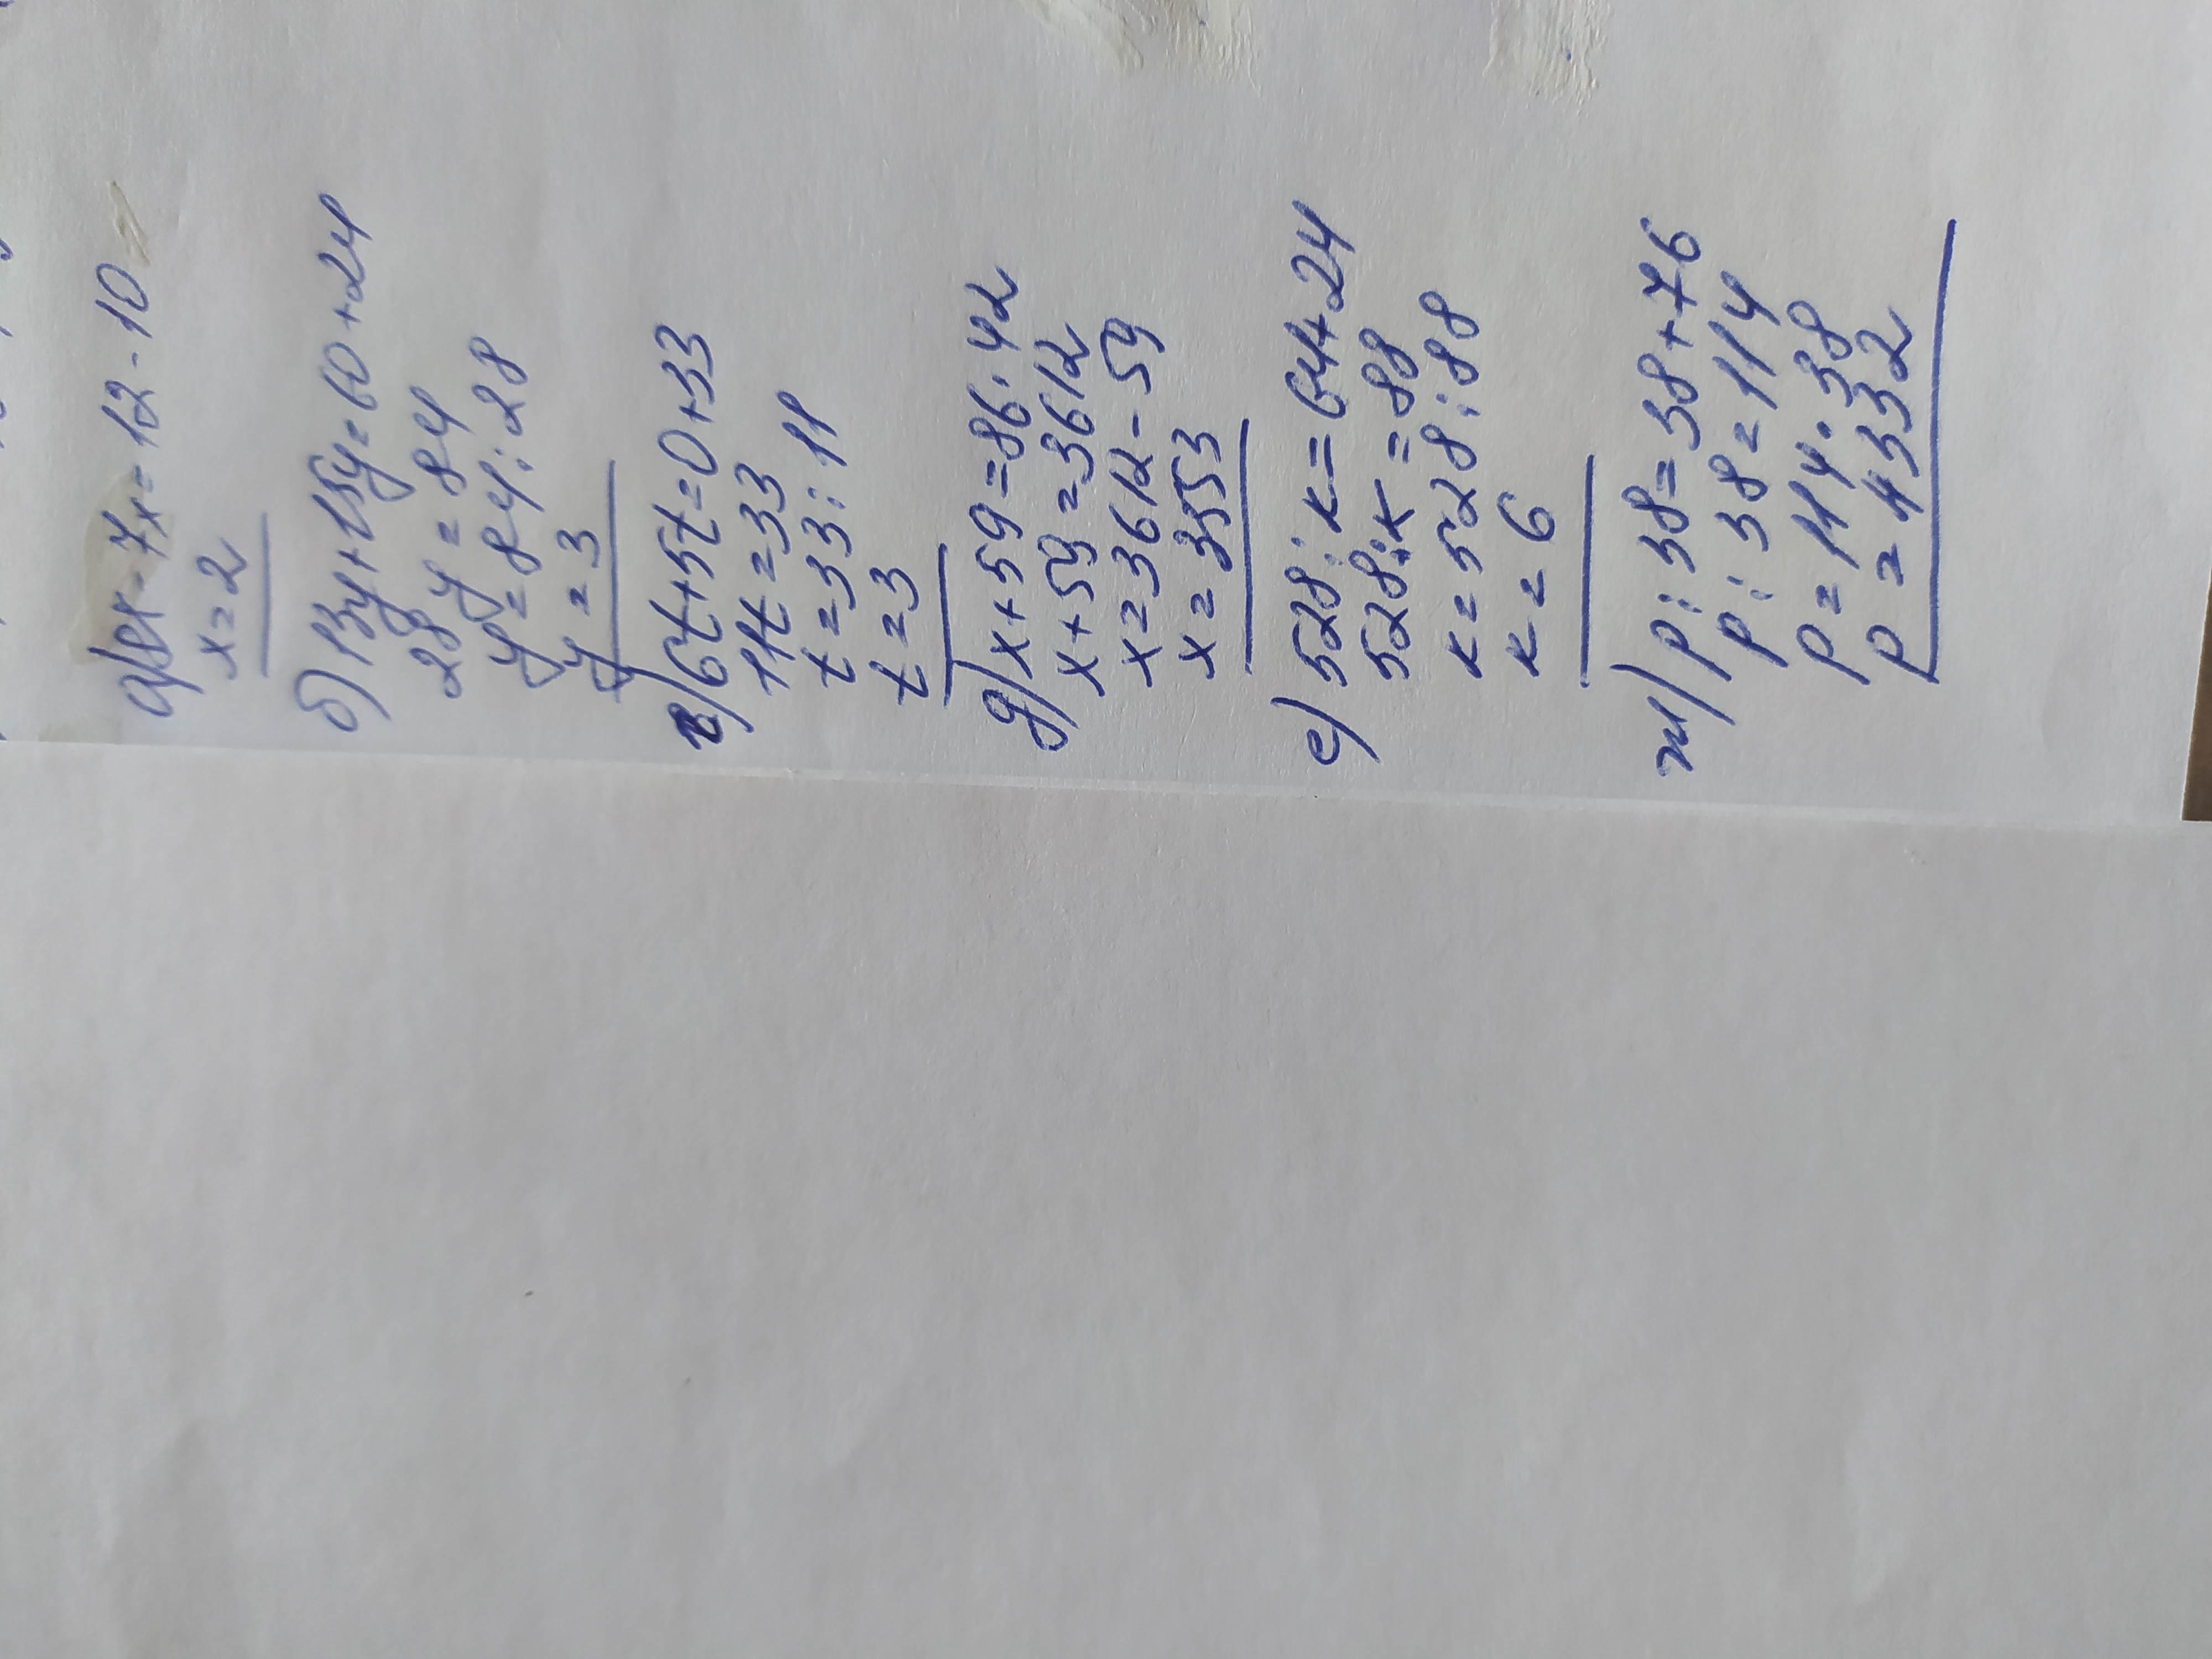 а) 8x-7x=12-10
x=2
б) 13y+15y=60+24
28y=84
y=84:28
y=3
в) 6t+5t=0+33
11t=33
t=33:11
t=3
д) x+59=86·42
x+59=3612
x=3612-59
x=3553
е) 528:к=64+24
528:к=88
к=528:88
к=6
ж) p:38=38+76
p:38=114
p=114·38
p=4332